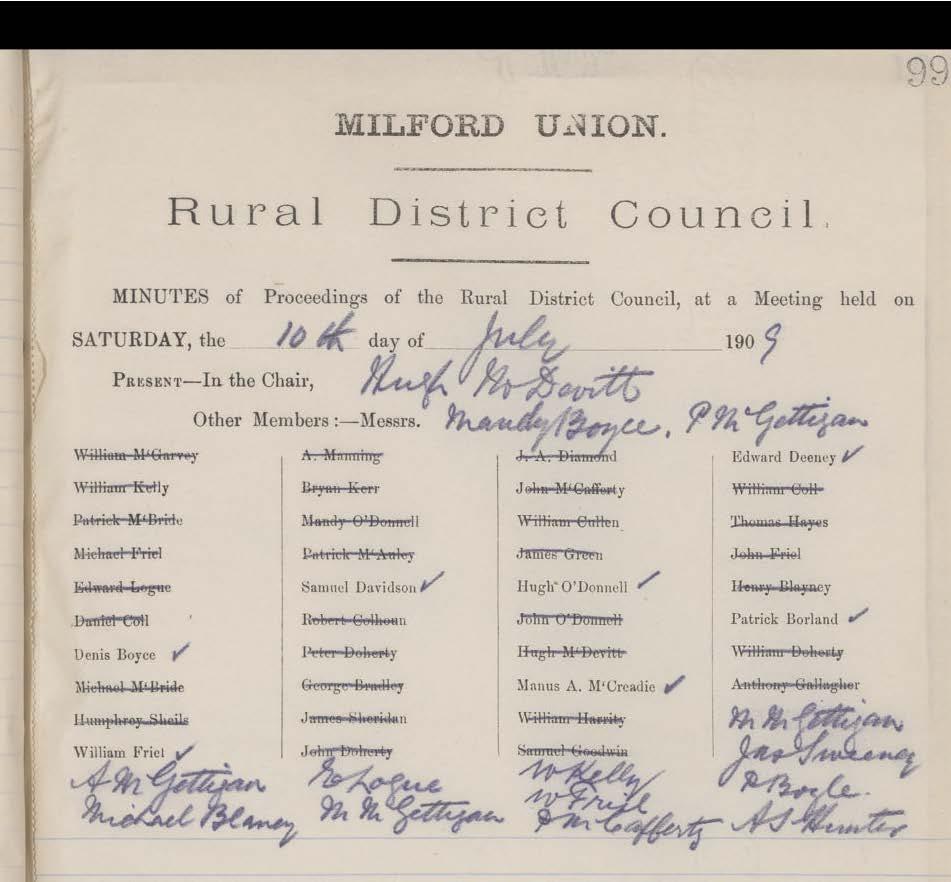 99
MILFORD UNION.
Rural District Council.
MINUTES of Proceedings of the Rural District Council, at a Meeting held on
SATURDAY, the 10th day of July 1909
PRESENT—In the Chair, Hugh McDevitt
Other Members:—Messrs. Mandy Boyce, P McGettigan
William M'Garvey A. Manning J. A. Diamond Edward Deeney ✓
William Kelly Bryan Kerr John M'Cafferty William Coll
Patrick M'Bride Mandy O'Donnell William Cullen Thomas Hayes
Michael Friel Patrick M'Auley James Green John Friel
Edward Logue Samuel Davidson ✓ Hugh O'Donnell ✓ Henry Blayney
Daniel Coll Robert Colhoun John O'Donnell Patrick Borland ✓
Denis Boyce ✓ Peter Doherty Hugh M'Devitt William Doherty
Michael M'Bride George Bradley Manus A. M'Creadie ✓ Anthony Gallagher
Humphrey Sheils James Sheridan William Harrity M McGettigan
William Friel ✓ John Doherty Samuel Goodwin Jas Sweeney
A McGettigan E Logue W Kelly D Boyle.
W Friel
Michael Blaney M McGettigan P McCafferty A S Hunter